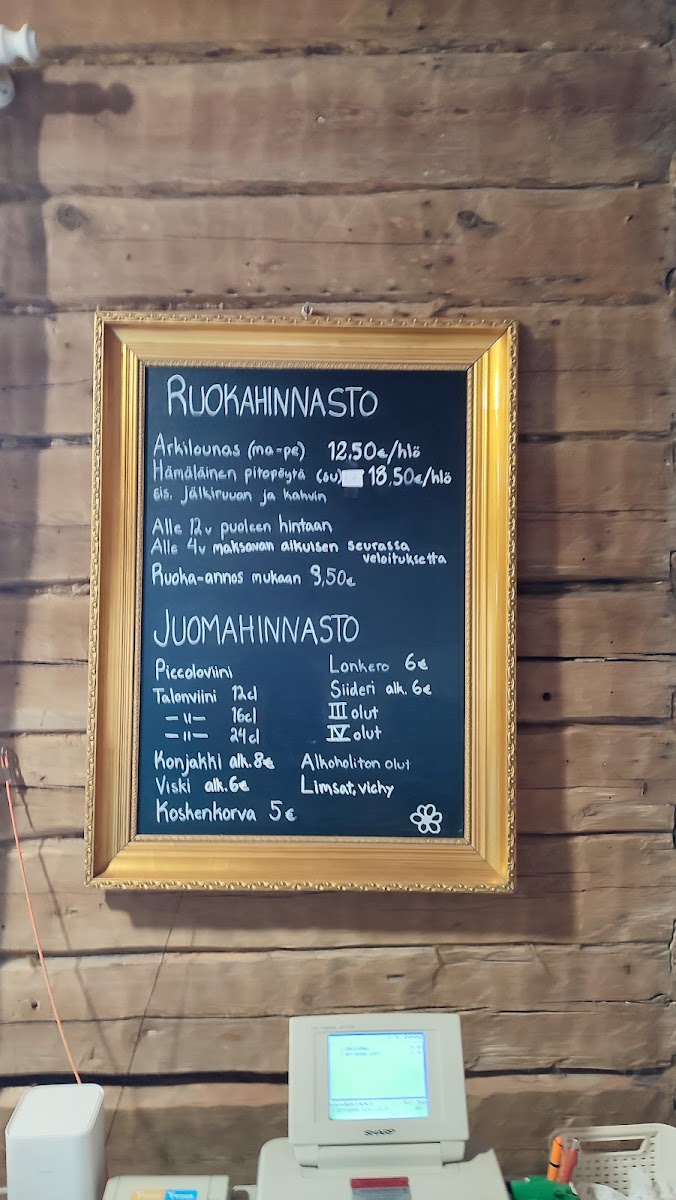 RUOKAHINNASTO
Arkilounas (ma-pe) 12,50€/hlö
Hämäläinen pitopöytä (su) 18,50€/hlö
sis. jälkiruuan ja kahvin
Alle 12v puoleen hintaan
Alle 4v maksavan aikuisen seurassa
veloituksetta
Ruoka-annos mukaan 9,50€
JUOMAHINNASTO
Piccoloviini
Talonviini 12cl
—"— 16cl
—"— 24cl
Konjakki alk. 8€
Viski alk. 6€
Koshenkorva 5€
Lonkero 6€
Siideri alk. 6€
III olut
IV olut
Alhoholiton olut
Limsat, vichy
SHARP